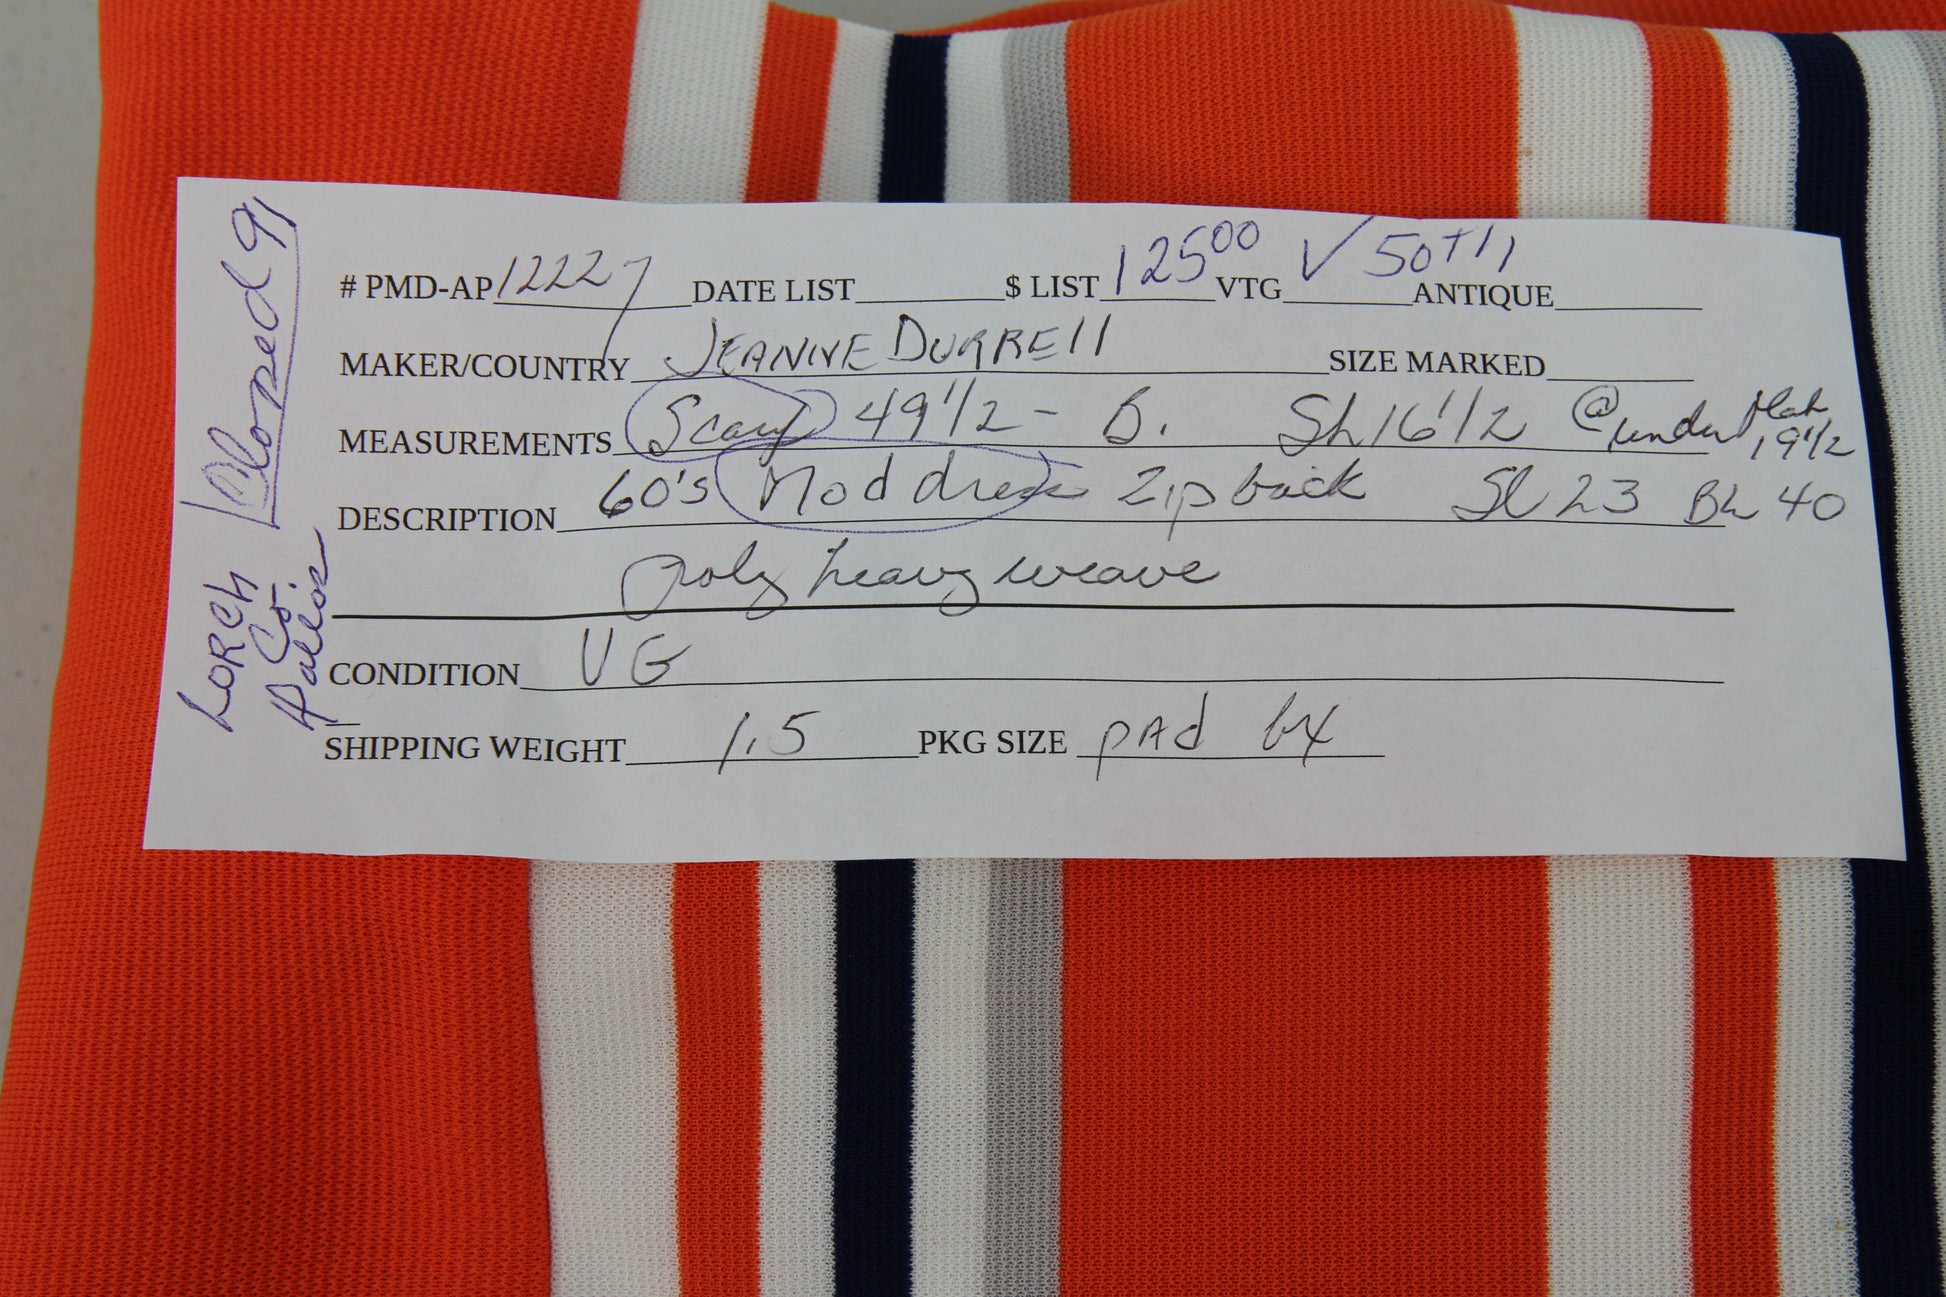 # PMD-AP 12227 DATE LIST $ LIST 12500 VTG ✓ 50+11 ANTIQUE
MAKER/COUNTRY JEANNE DURRELL SIZE MARKED
MEASUREMENTS Scarf 49 1/2 - B. Sh 16 1/2 @ under flat 19 1/2
DESCRIPTION 60's Mod dress Zip back Sl 23 BL 40
poly heavy weave
CONDITION VG
SHIPPING WEIGHT 1.5 PKG SIZE PAD bx
LORCH
Co.
Dallas